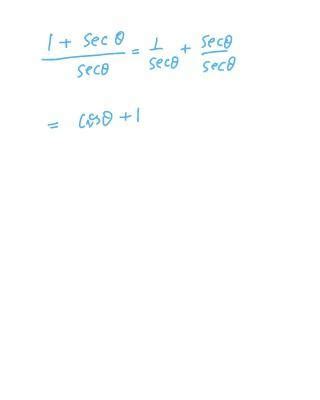 (1 + sec θ)/(sec θ) = 1/(sec θ) + (sec θ)/(sec θ)
= cos θ + 1